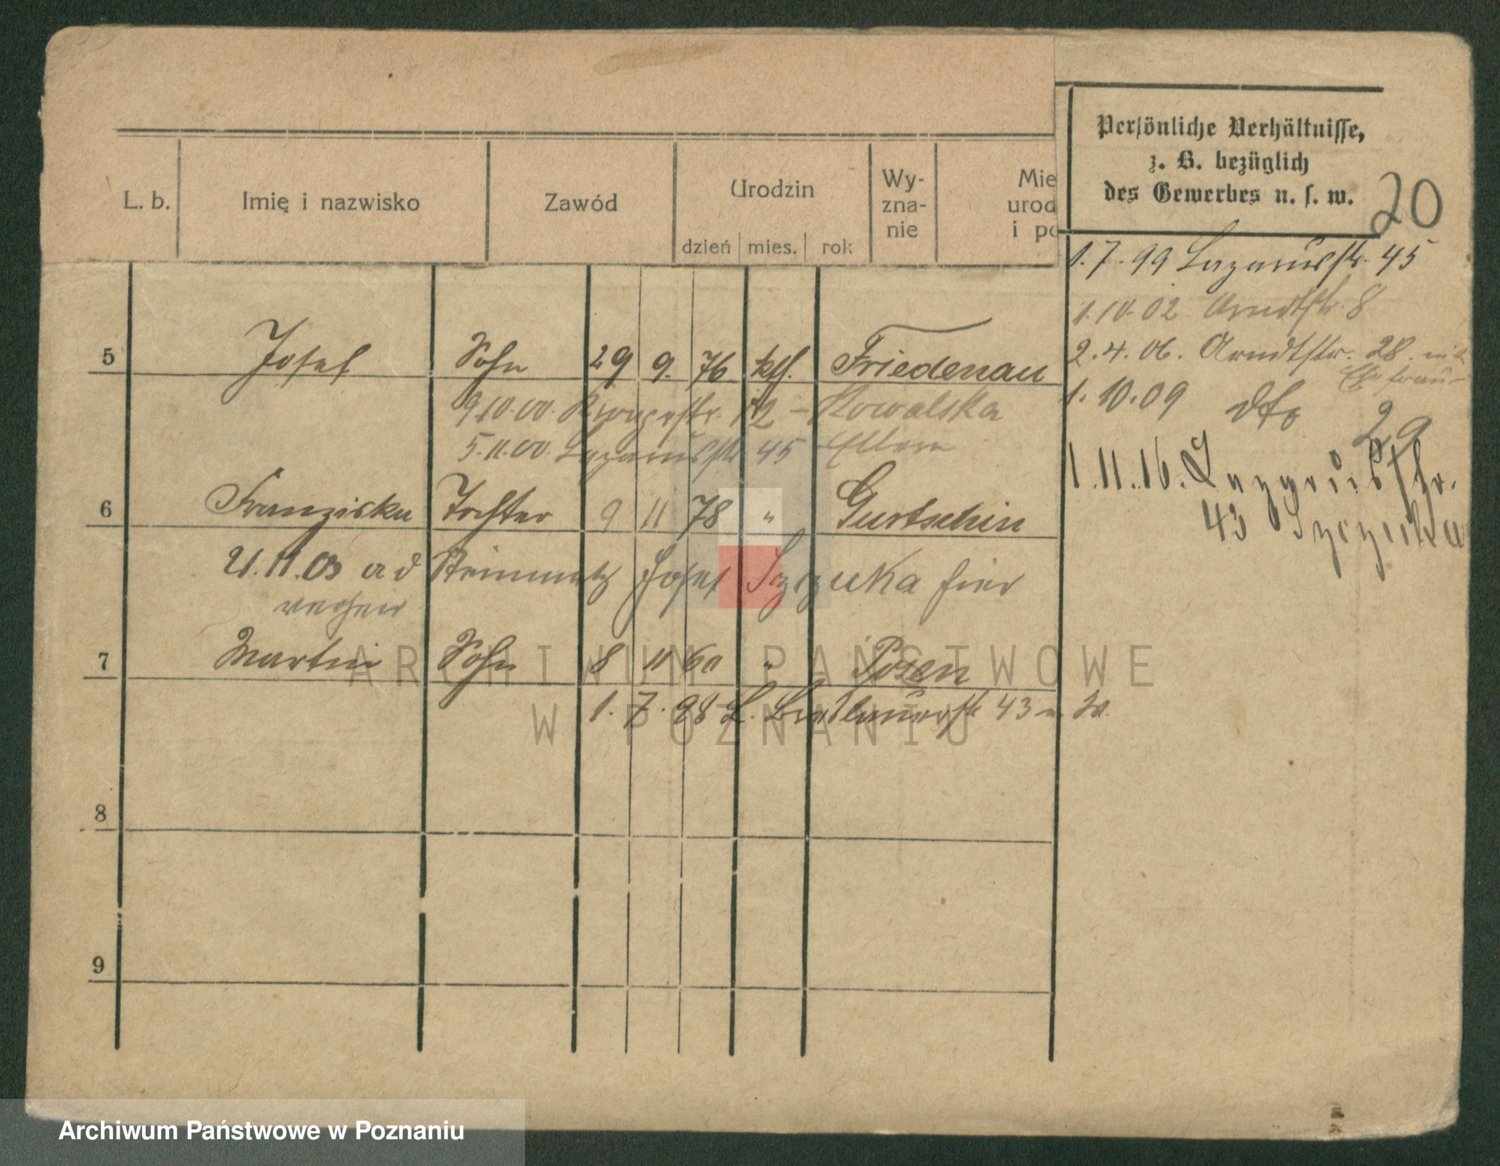 L. b. Imię i nazwisko Zawód Urodzin dzień mies. rok Wy-zna-nie Mie urod i po
Persönliche Verhältnisse,
z. B. bezüglich
des Gewerbes u. s. w.
20
1.7.99 Lazarusstr. 45
1.10.02 Arndtstr. 8
2.4.06. Arndtstr. 28. mit
Ehefrau
1.10.09 dto 29
1.11.16. Lazarusstr.
43 Szczuka
5 Josef Sohn 29 9. 76 kth. Friedenau
9.10.00. 12 - Kowalska
5.11.00. Lazarusstr 45 Eltern
6 Franziska Tochter 9 11 78 " Gurtschin
21.11.03 ad Steinmetz Josef Szczuka hier
7 Martin Sohn 8 11 60 " Posen
1.7.98 Breslauerstr 43
8
9
ARCHIWUM PAŃSTWOWE
W POZNANIU
Archiwum Państwowe w Poznaniu